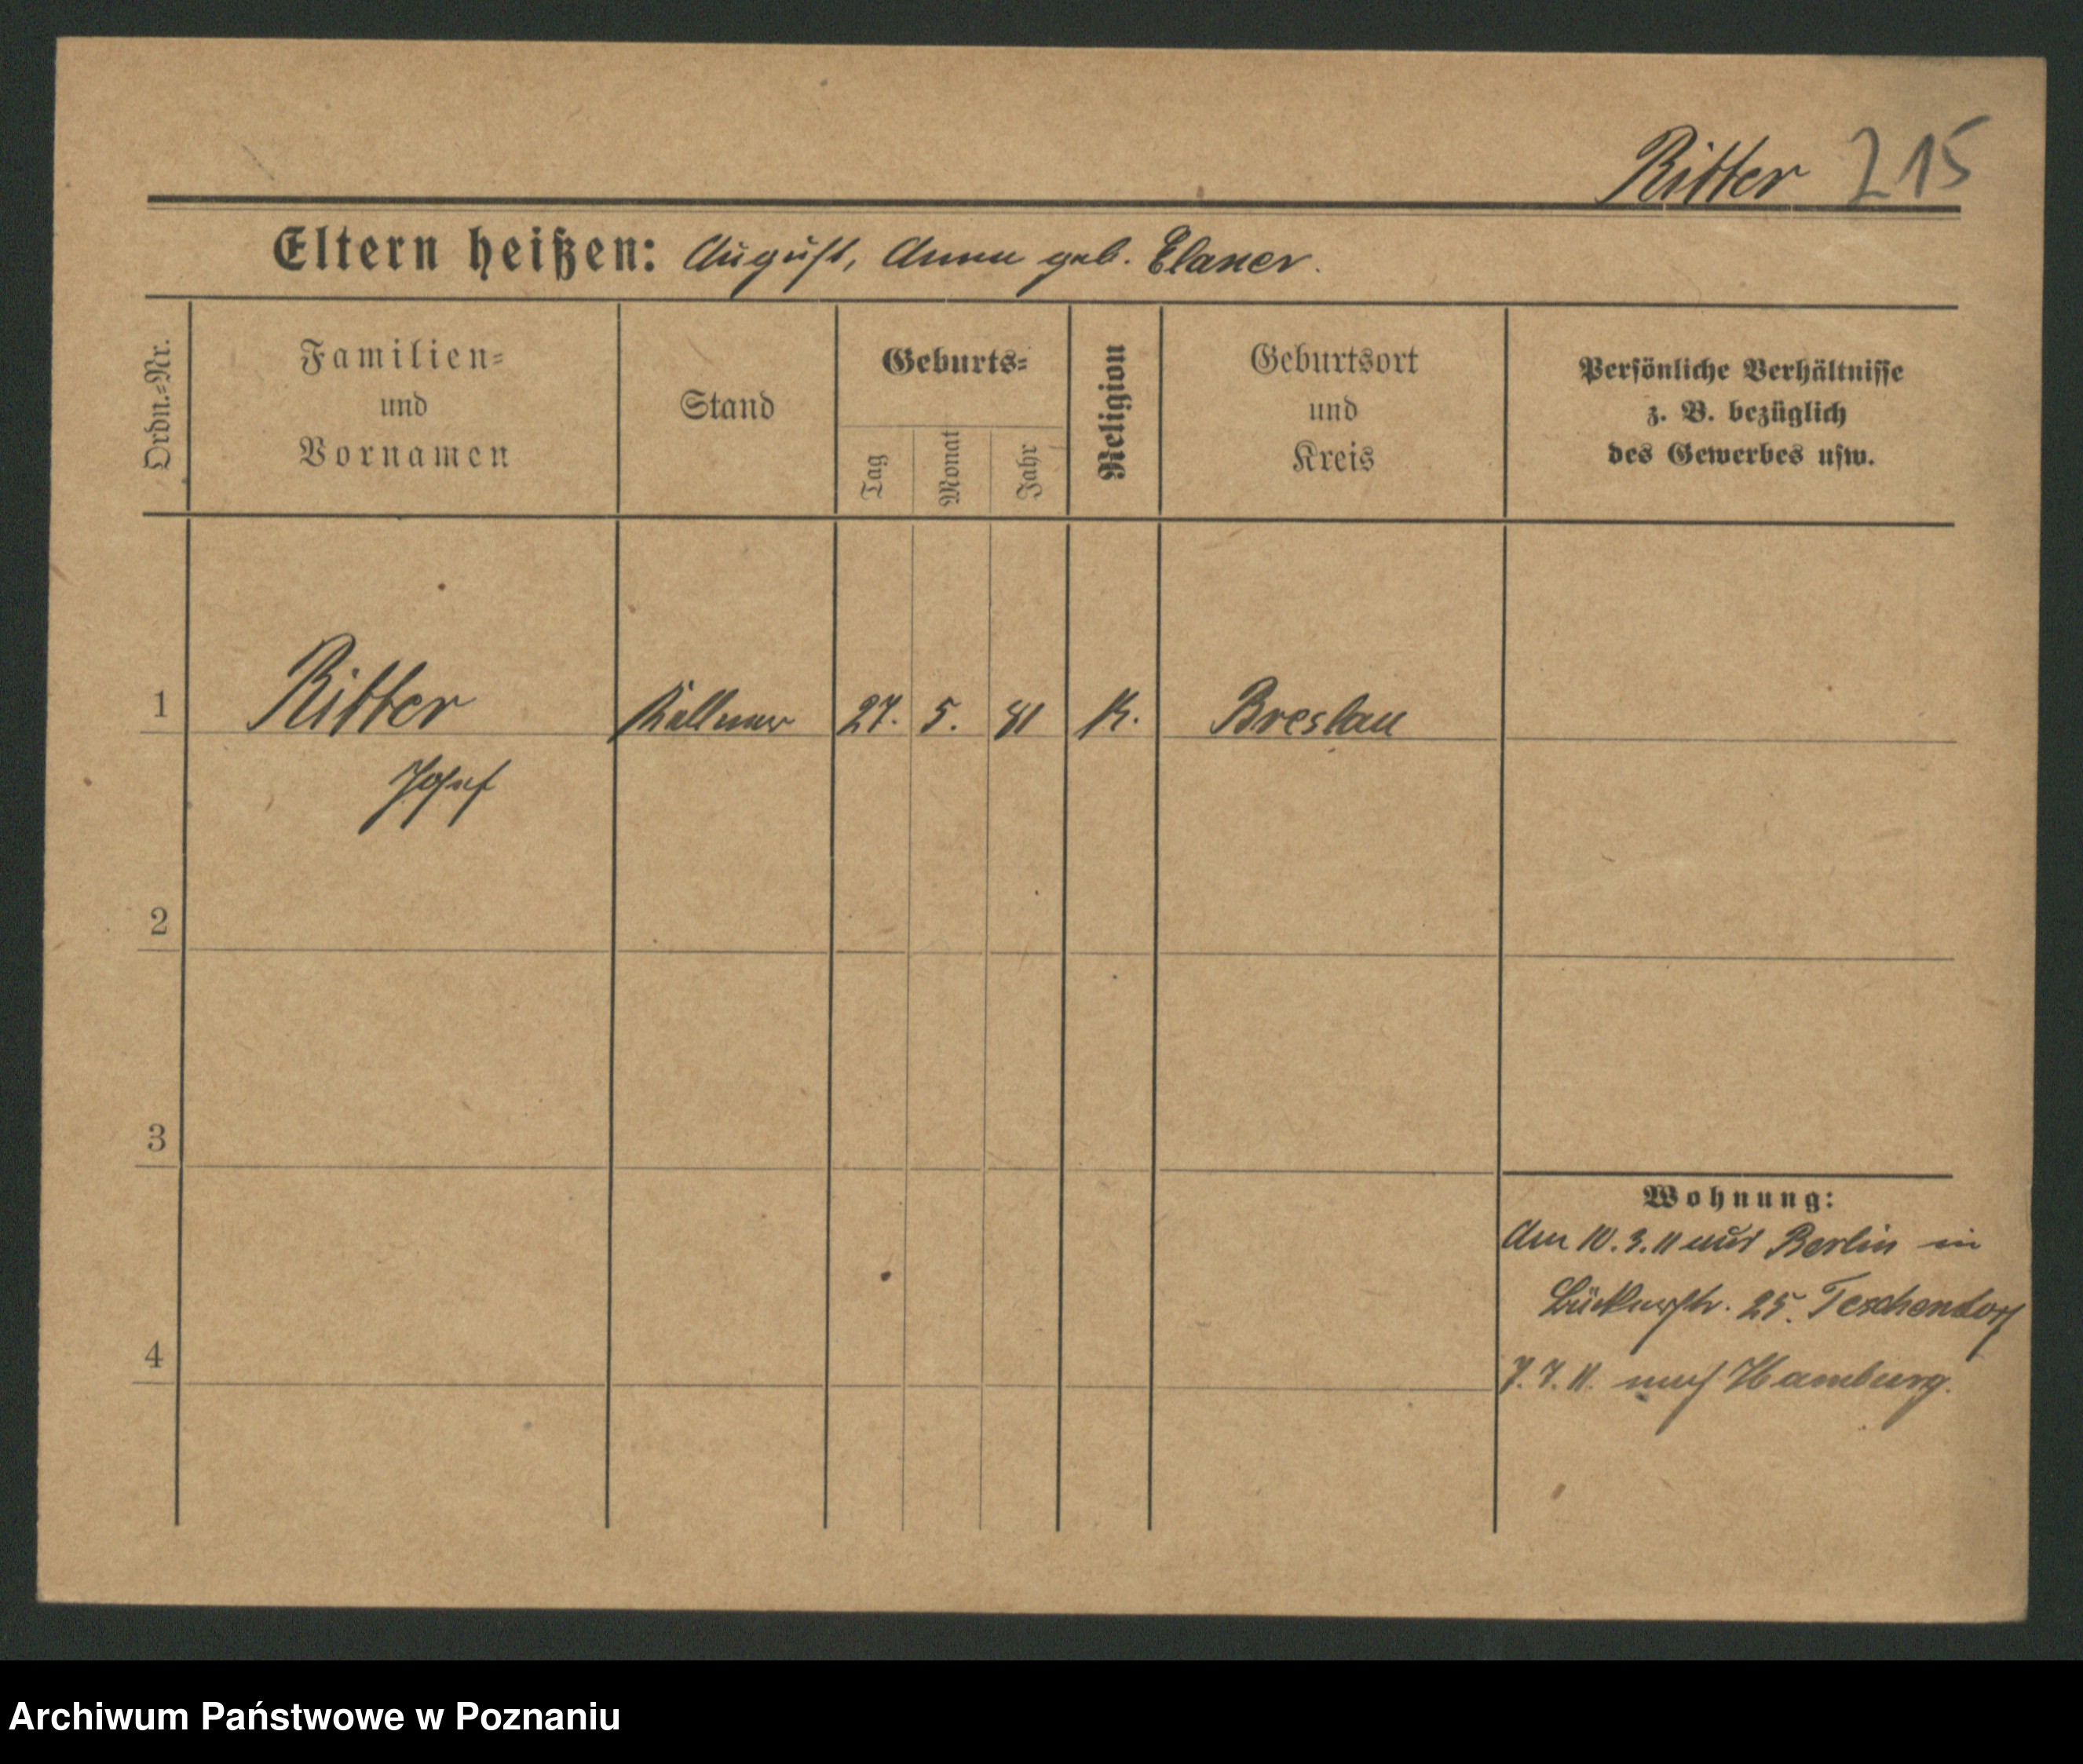 Ritter 215
Eltern heißen: August, Anna geb. Elsner.
Ordn.-Nr.
Familien-
und
Vornamen
Stand
Geburts-
Tag
Monat
Jahr
Religion
Geburtsort
und
Kreis
Persönliche Verhältnisse
z. B. bezüglich
des Gewerbes usw.
1 Ritter Kellner 27. 5. 81 K. Breslau
Josef
2
3
Wohnung:
Am 10.3.11 aus Berlin in
25. Teschendorf
4
7.7.11. nach Hamburg.
Archiwum Państwowe w Poznaniu